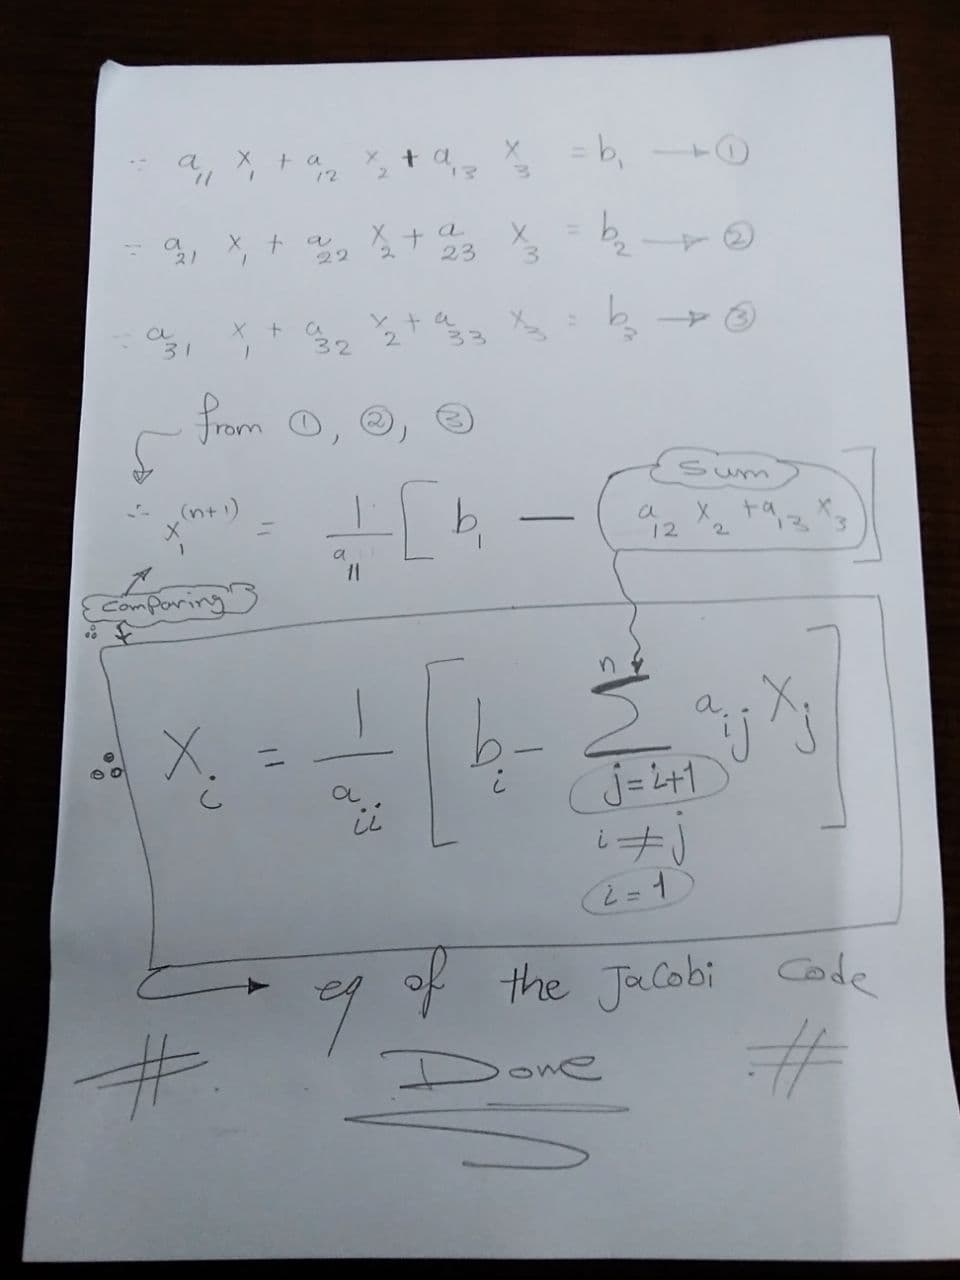 ∵ a₁₁ x₁ + a₁₂ x₂ + a₁₃ x₃ = b₁ → ①
∵ a₂₁ x₁ + a₂₂ x₂ + a₂₃ x₃ = b₂ → ②
∵ a₃₁ x₁ + a₃₂ x₂ + a₃₃ x₃ = b₃ → ③
from ①, ②, ③
Sum
∴ x₁⁽ⁿ⁺¹⁾ = 1/a₁₁ [ b₁ − ( a₁₂ x₂ + a₁₃ x₃ ) ]
Comparing
∴ Xᵢ = 1/aᵢᵢ [ bᵢ − n∑ aᵢⱼ Xⱼ ]
j=i+1
i≠j
i=1
eq of the Jacobi Code
# Done #